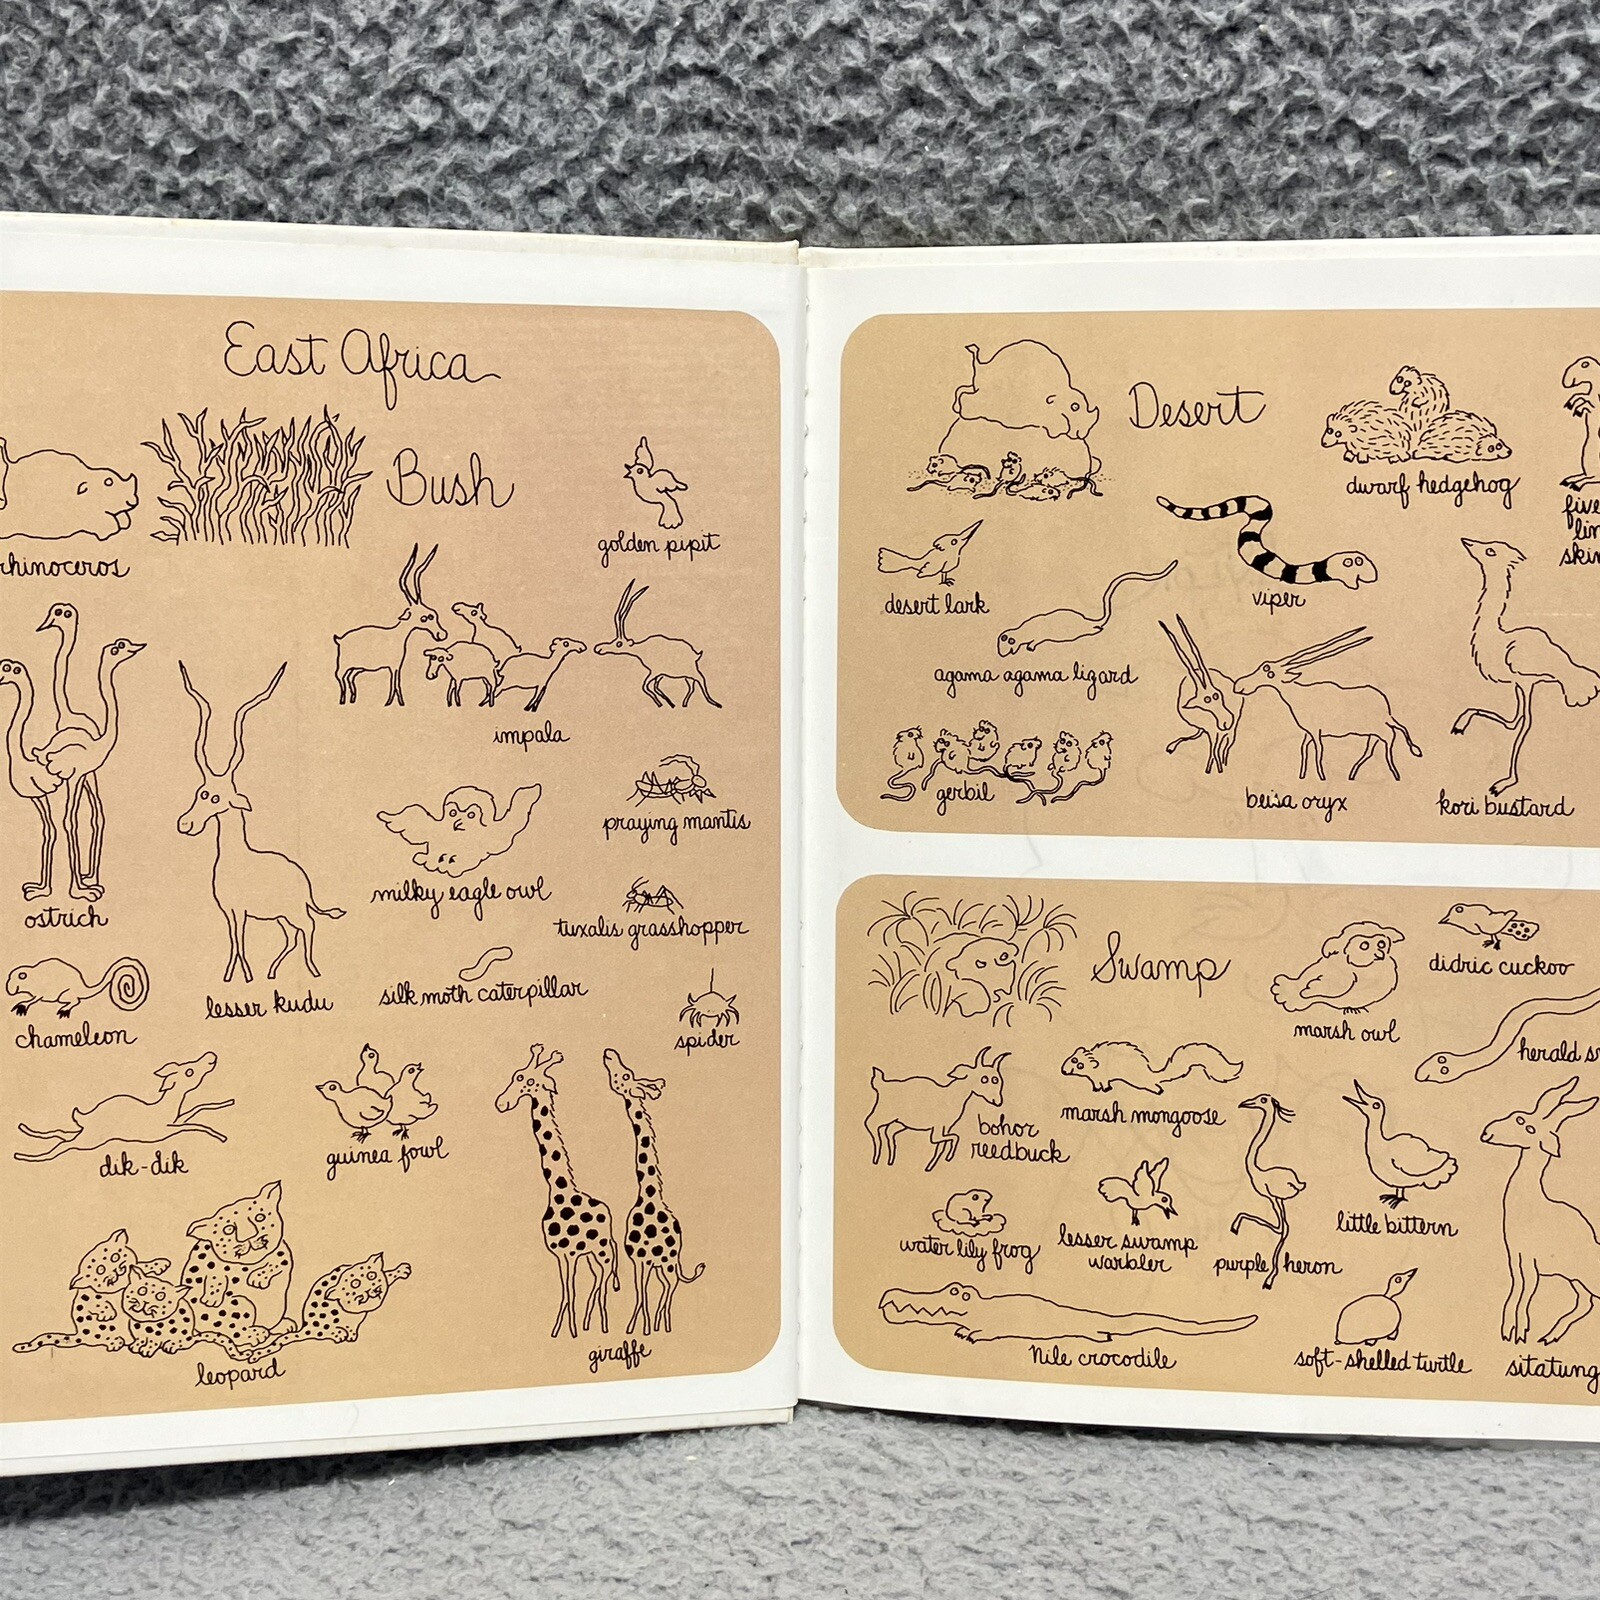 East Africa
Bush
rhinoceros
golden pipit
impala
praying mantis
ostrich
lesser kudu
milky eagle owl
tuxalis grasshopper
silk moth caterpillar
spider
chameleon
dik-dik
guinea fowl
leopard
giraffe
Desert
dwarf hedgehog
five
lin
skin
desert lark
viper
agama agama lizard
gerbil
beisa oryx
kori bustard
Swamp
didric cuckoo
marsh owl
herald sn
bohor
reedbuck
marsh mongoose
little bittern
water lily frog
lesser swamp
warbler
purple heron
Nile crocodile
soft-shelled turtle
sitatung